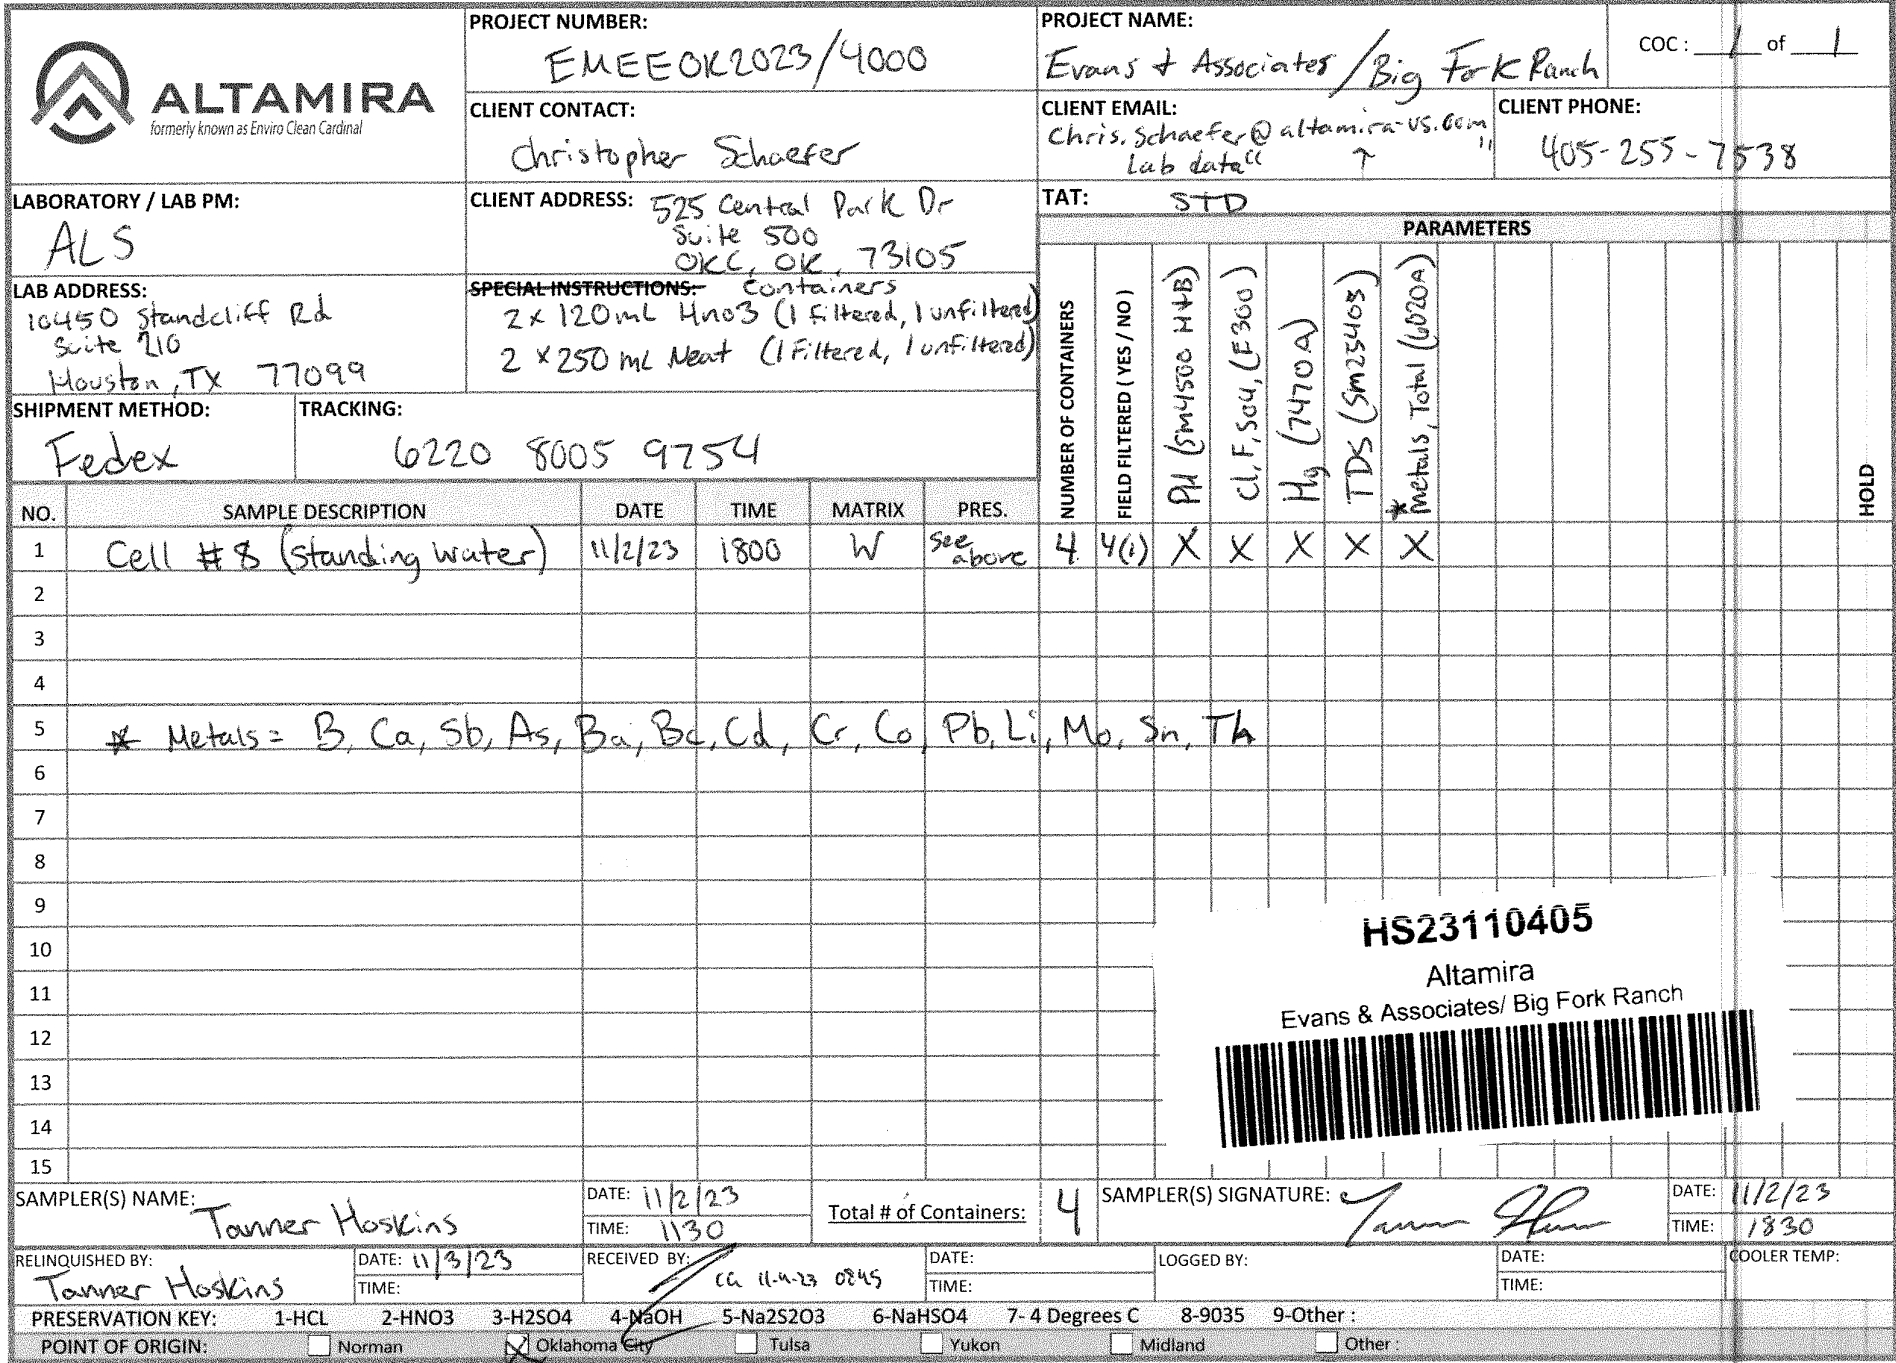 ALTAMIRA
formerly known as Enviro Clean Cardinal
PROJECT NUMBER:
EMEEOK2023/4000
PROJECT NAME:
Evans & Associates / Big Fork Ranch
COC : 1 of 1
CLIENT CONTACT:
Christopher Schaefer
CLIENT EMAIL:
Chris.Schaefer@altamira-us.com
Lab data" ↑ "
CLIENT PHONE:
405-255-7538
LABORATORY / LAB PM:
ALS
CLIENT ADDRESS: 525 Central Park Dr
Suite 500
OKC, OK, 73105
TAT: STD
PARAMETERS
LAB ADDRESS:
10450 Standcliff Rd
Suite 210
Houston, TX 77099
SPECIAL INSTRUCTIONS: Containers
2 x 120mL Hno3 (1 filtered, 1 unfiltered)
2 x 250 mL Neat (1 Filtered, 1 unfiltered)
SHIPMENT METHOD:
Fedex
TRACKING:
6220 8005 9754
NUMBER OF CONTAINERS
FIELD FILTERED ( YES / NO )
PH (SM4500 H+B)
Cl, F, SO4, (E300)
Hg (7470A)
TDS (SM2540S)
* Metals, Total (6020A)
HOLD
NO. SAMPLE DESCRIPTION DATE TIME MATRIX PRES.
1 Cell #8 (Standing Water) 11/2/23 1800 W See above 4 4(1) X X X X X
2
3
4
5 * Metals = B, Ca, Sb, As, Ba, Be, Cd, Cr, Co, Pb, Li, Mo, Sn, Th
6
7
8
9
10
11
12
13
14
15
HS23110405
Altamira
Evans & Associates/ Big Fork Ranch
SAMPLER(S) NAME: Tanner Hoskins
DATE: 11/2/23
TIME: 1130
Total # of Containers: 4
SAMPLER(S) SIGNATURE:
DATE: 11/2/23
TIME: 1830
RELINQUISHED BY: Tanner Hoskins
DATE: 11/3/23
TIME:
RECEIVED BY: CG 11-4-23 0845
DATE:
TIME:
LOGGED BY:
DATE:
TIME:
COOLER TEMP:
PRESERVATION KEY: 1-HCL 2-HNO3 3-H2SO4 4-NaOH 5-Na2S2O3 6-NaHSO4 7- 4 Degrees C 8-9035 9-Other :
POINT OF ORIGIN: Norman X Oklahoma City Tulsa Yukon Midland Other :